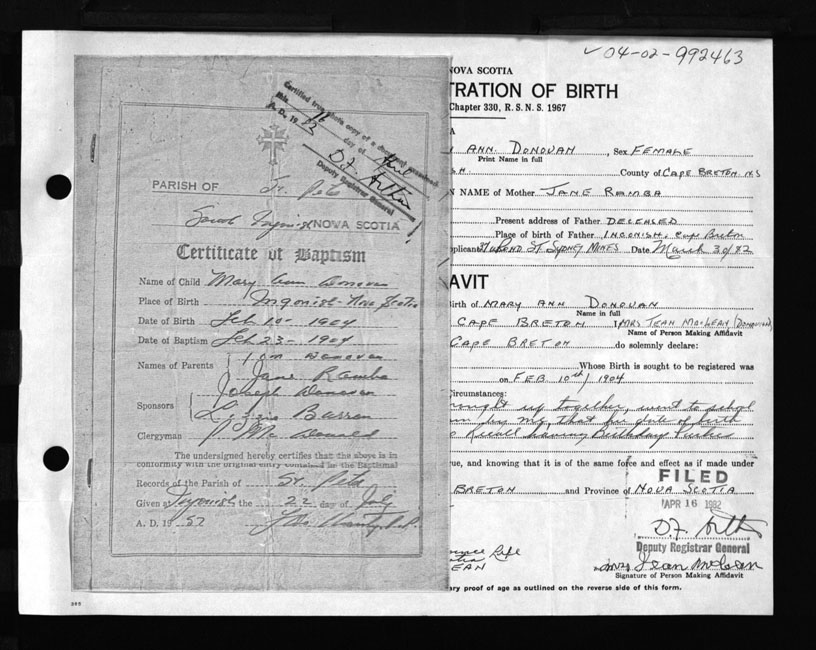 ✓04-02-992463
Certified true photo copy of a document produced
this 16 day of April
A. D. 19 82
D.F. Arthur
Deputy Registrar General
PARISH OF St. Peter
South Ingonish NOVA SCOTIA
Certificate of Baptism
Name of Child Mary Ann Donovan
Place of Birth Ingonish - Nova Scotia
Date of Birth Feb 10 - 1904
Date of Baptism Feb 23 - 1904
Names of Parents
Tom Donovan
Jane Ramba
Sponsors
Joseph Donovan
Lizzie Barron
Clergyman P. McDonald
The undersigned hereby certifies that the above is in
conformity with the original entry contained in the Baptismal
Records of the Parish of St. Peter
Given at Ingonish the 22 day of July
A. D. 19 57
NOVA SCOTIA
TRATION OF BIRTH
Chapter 330, R. S. N. S. 1967
ANN. DONOVAN, Sex FEMALE
Print Name in full
SH County of CAPE BRETON N.S
N NAME of Mother JANE RAMBA
Present address of Father DECEASED
Place of birth of Father INGONISH, Cape Breton
pplicant ST SYDNEY MINES Date March 30/82
AVIT
Birth of MARY ANN DONOVAN
Name in full
CAPE BRETON I MRS JEAN MacLEAN (DONOVAN)
Name of Person Making Affidavit
CAPE BRETON do solemnly declare:
Whose Birth is sought to be registered was
on FEB 10th/1904
Circumstances:
rought up together, went to school
that her date of birth
Birthday Parties
rue, and knowing that it is of the same force and effect as if made under
FILED
BRETON and Province of NOVA SCOTIA
APR 16 1982
D.F. Arthur
Deputy Registrar General
EAN
Mrs Jean McLean
Signature of Person Making Affidavit
ary proof of age as outlined on the reverse side of this form.